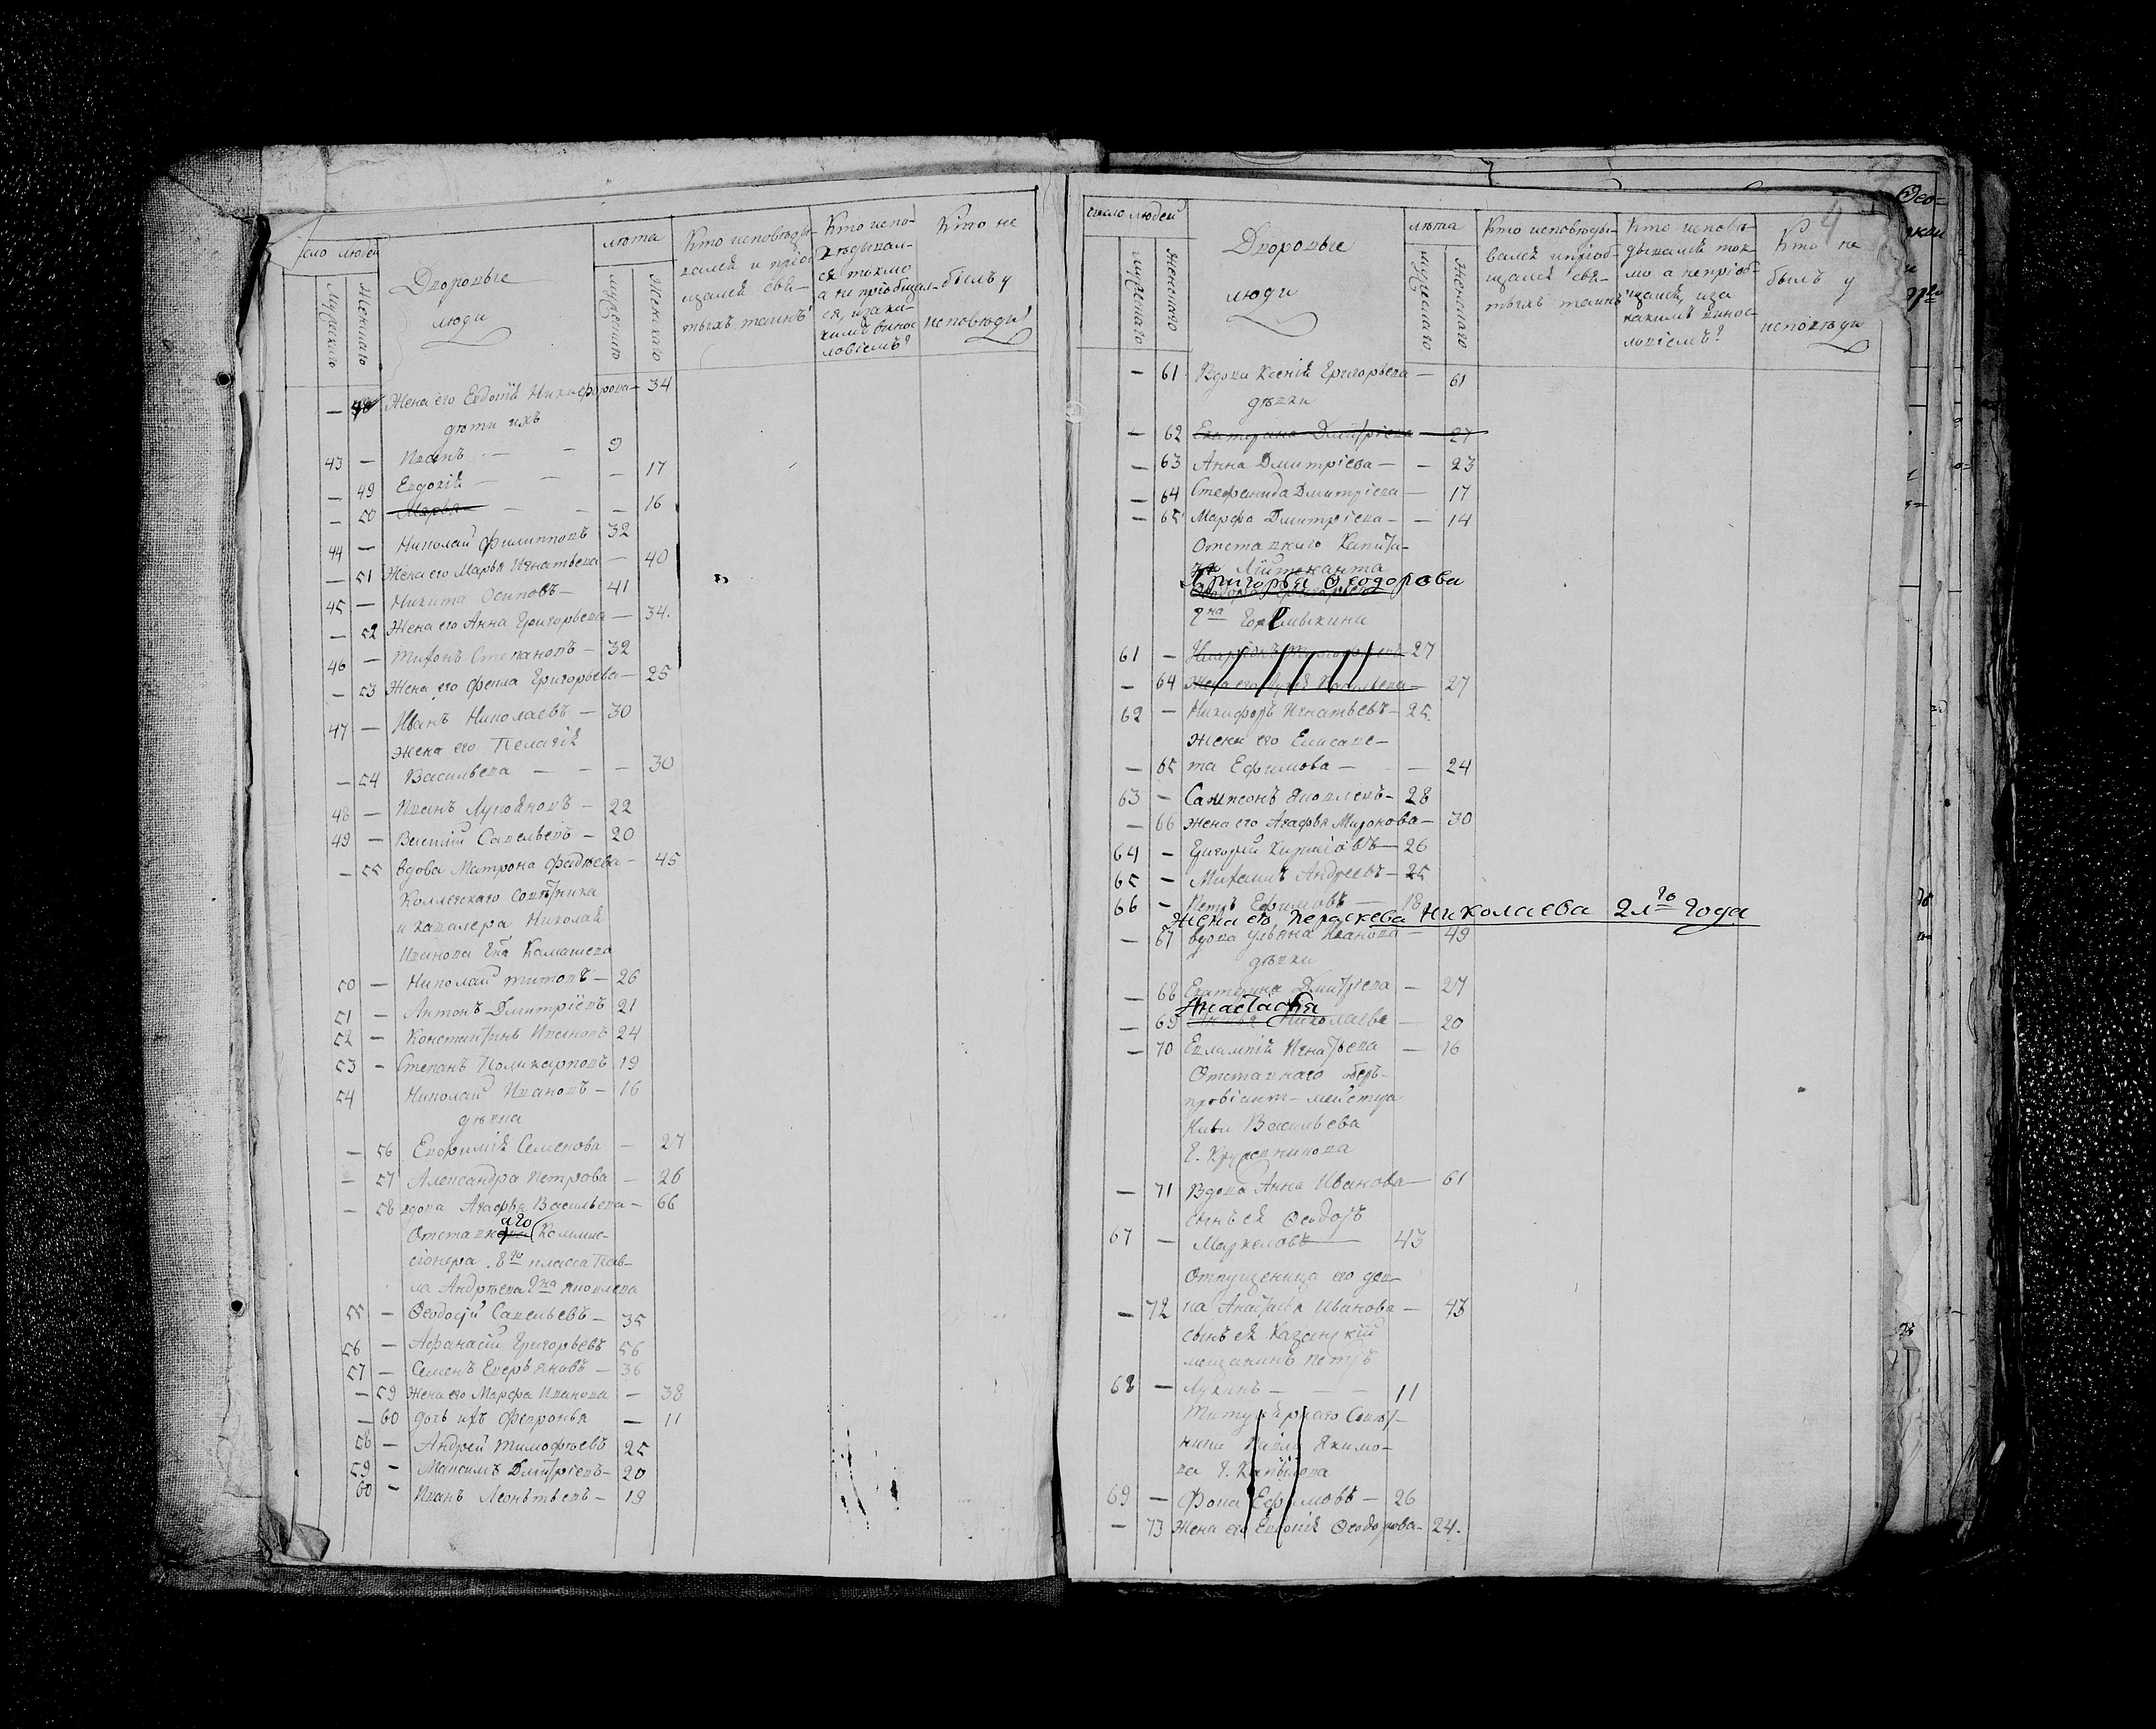 сло людей
Дворовые
люди
лѣта
мужескаго
женскаго
мужескаго
женскаго
Кто исповѣды-
вался и пріоб-
щался свя-
тыхъ таинъ?
Кто испо-
вѣдывал-
ся токмо
а не пріобщал-
ся, и за ка-
кимъ винос-
ловіемъ?
Кто не
былъ у
исповѣди?
— 48 Жена его Евдокія Никифорова — 34
дѣти ихъ
43 — Иванъ — — 9
— 49 Евдокія — — — 17
— 50 Марья — — — 16
44 — Николай Филипповъ 32
— 51 Жена его Марья Игнатьева — 40
45 — Никита Осиповъ — 41
— 52 Жена его Анна Григорьева — 34.
46 — Тихонъ Степановъ — 32
— 53 Жена его Фекла Григорьева — 25
47 — Иванъ Николаевъ — 30
Жена его Пелагія
— 54 Васильева — — — 30
48 — Иванъ Лукояновъ — 22
49 — Василій Савельевъ — 20
— 55 вдова Матрона Фадѣева — 45
Коллежскаго Совѣтника
и кавалера Николая
Иванова Г-на
50 — Николай Титовъ — 26
51 — Антонъ Дмитріевъ 21
52 — Константинъ Ивановъ 24
53 — Степанъ Поликарповъ 19
54 Николай Ивановъ — 16
дѣвка
— 56 Евфимія Семенова — 27
— 57 Александра Петрова — 26
— 58 вдова Агафья Васильева — 66
Отставнаго Коммис-
сіонера 8го класса Пав-
ла Андрѣева Г-на Яковлева
55 — Ѳеодосій Савельевъ — 35
56 — Афанасій Григорьевъ 56
57 — Семенъ Аверьяновъ — 36
— 59 Жена его Марфа Иванова — 38
— 60 дочь ихъ Февронья — 11
58 — Андрей Тимофѣевъ 25
59 — Максимъ Дмитріевъ — 20
60 — Иванъ Леонтьевъ — 19
число людей
Дворовые
люди
лѣта
мужескаго
женскаго
мужескаго
женскаго
Кто исповѣды-
вался и пріоб-
щался свя-
тыхъ таинъ
Кто исповѣ-
дывался ток-
мо а не пріоб-
щался, и за
какимъ винос-
ловіемъ?
Кто не
былъ у
исповѣди
4
— 61 Вдова Ксенія Григорьева — 61
дѣвки
— 62 Екатерина Дмитріева — 27
— 63 Анна Дмитріева — — 23
— 64 Стефанида Дмитріева — 17
— 65 Марфа Дмитріева — — 14
Отставнаго Капита-
Лейтенанта
Григорья Ѳеодорова
Г-на
61 — 27
— 64 Жена его — 27
62 — Никифоръ Игнатьевъ — 25.
Жена его Елисаве-
— 65 та Ефимова — — 24
63 — Сампсонъ Яковлевъ — 28
— 66 Жена его Агафья Миронова — 30
64 — Григорій 26
65 — Михаилъ Андреевъ — 25
66 — Петръ Ефимовъ — 18
Жена его Параскева Николаева 21го года
— 67 вдова Ульяна Иванова — 49
дѣвки
— 68 Екатерина Дмитріева — 27
Анастасья
— 69 Николаева — 20
— 70 Евлампія Игнатьева — 16
Отставнаго оберъ-
провіант-мейстера
Васильева
Г.
— 71 Вдова Анна Иванова — 61
сынъ ея Ѳеодоръ
67 — Маркеловъ 43
Отпущеница его дев-
— 72 ка Анастасья Иванова — 43
сынъ ея Казанскій
мещанинъ Петръ
68 — Лукинъ — — — 11
Титулярнаго Совѣт-
ника Якимо-
ва Г.
69 — Фока Ефимовъ — 26
— 73 Жена его Евдокія Ѳеодорова — 24.